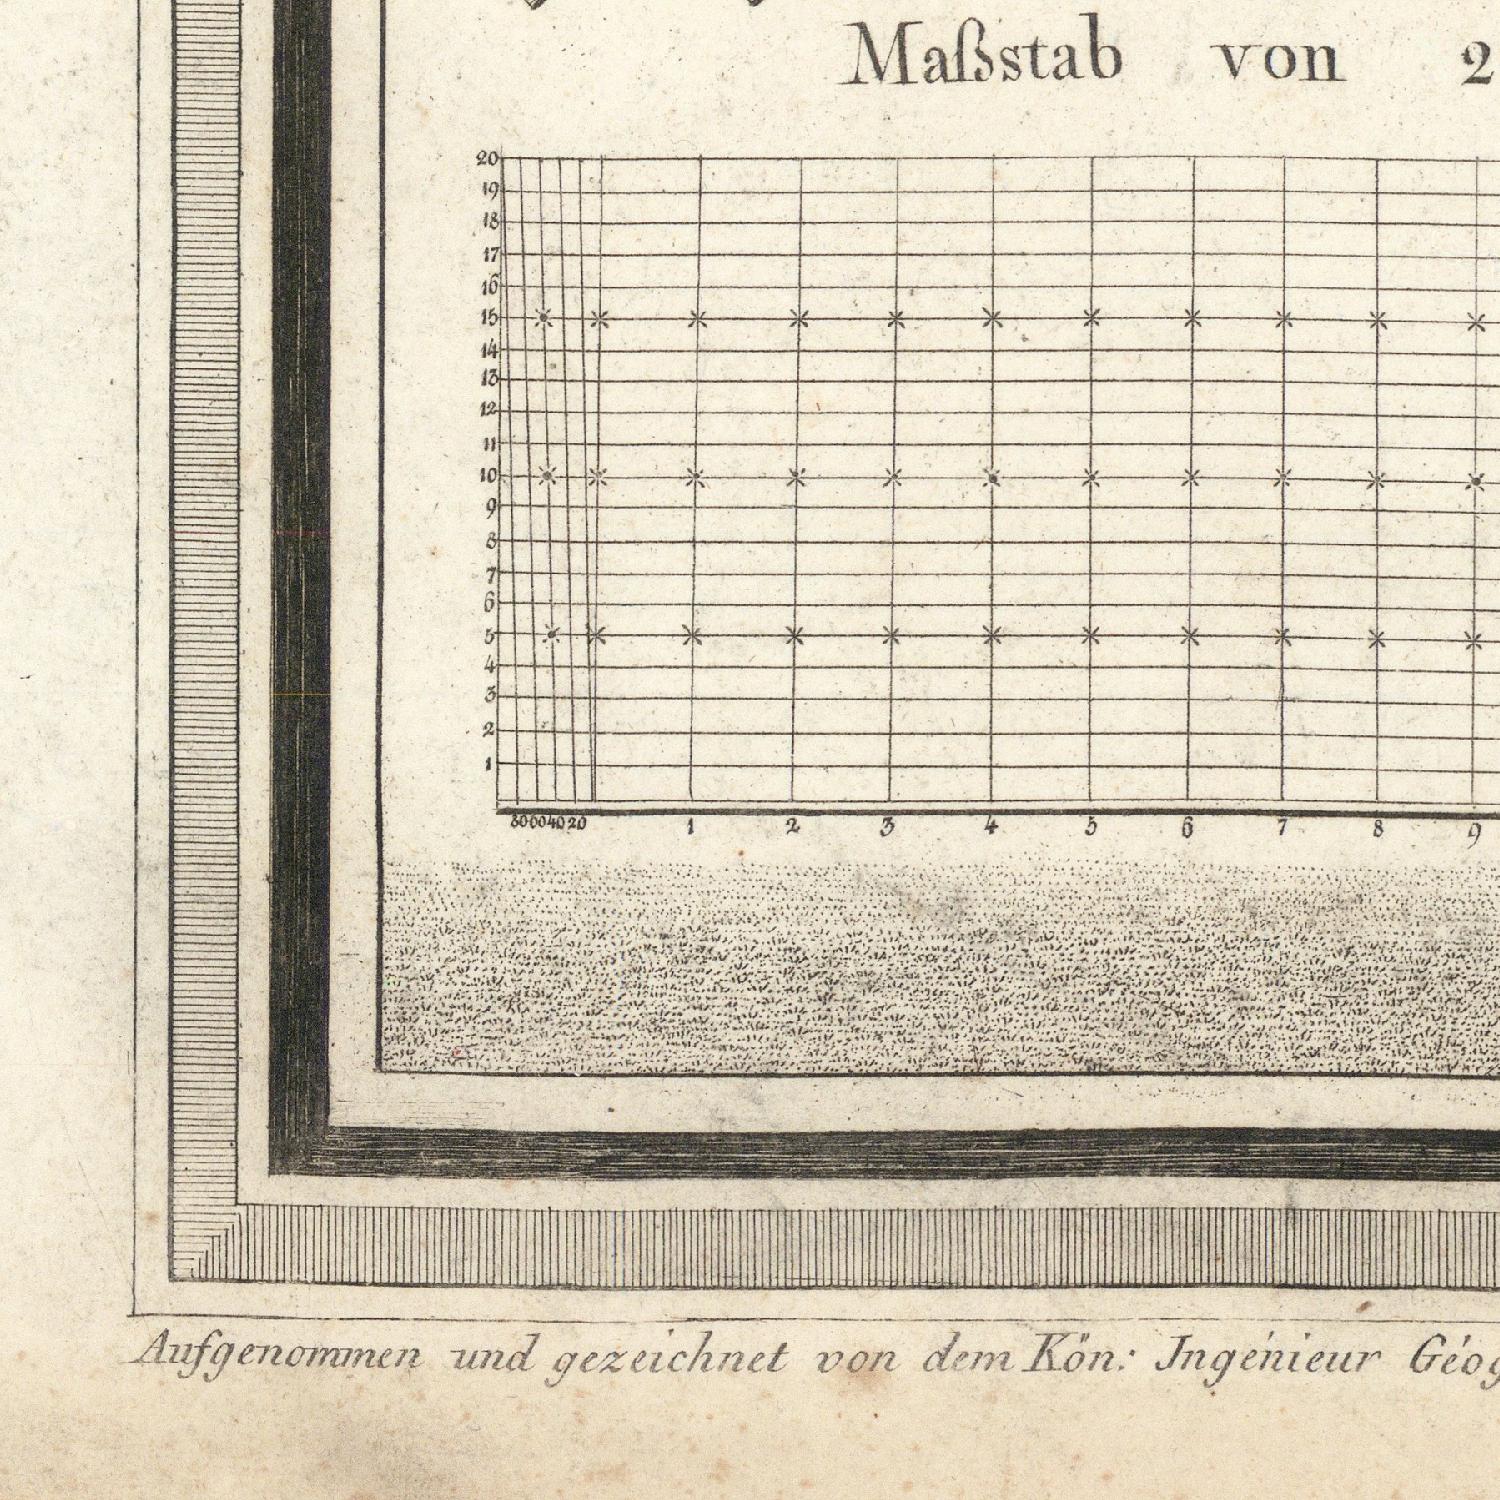 Maßstab von 2
20
19
18
17
16
15
14
13
12
11
10
9
8
7
6
5
4
3
2
1
80 60 40 20 1 2 3 4 5 6 7 8 9
Aufgenommen und gezeichnet von dem Kön: Ingénieur Géog